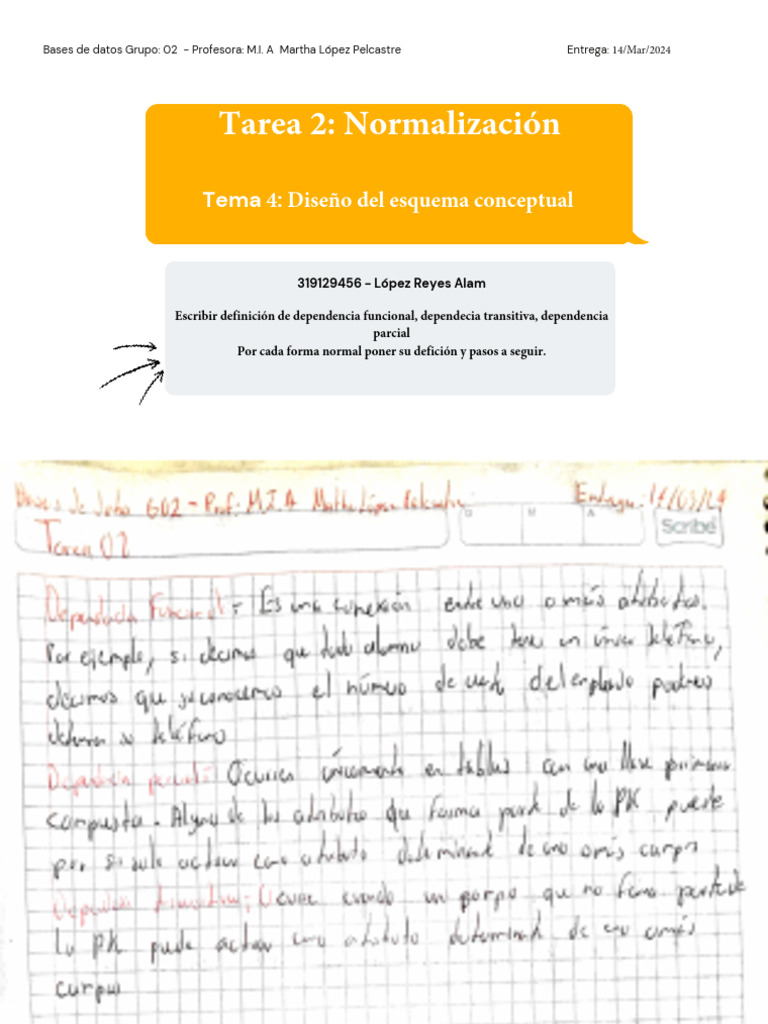 Bases de datos Grupo: 02 - Profesora: M.I. A Martha López Pelcastre Entrega: 14/Mar/2024
Tarea 2: Normalización
Tema 4: Diseño del esquema conceptual
319129456 - López Reyes Alam
Escribir definición de dependencia funcional, dependecia transitiva, dependencia
parcial
Por cada forma normal poner su defición y pasos a seguir.
Bases de datos G02 - Prof: M.I.A Martha López Pelcastre Entrega: 14/03/24
Tarea 02
D M A
Scribe
Dependencia Funcional: Es una conexión entre uno o más atributos.
Por ejemplo, si decimos que todo alumno debe tener un único teléfono,
decimos que si conocemos el número de del empleado podemos
su teléfono
Ocurren únicamente en tablas con una llave primaria
compuesta. Alguno de los atributos que forma parte de la PK puede
por si solo actuar como atributo determinante de uno o más
Ocurre cuando un que no forma parte de
la PK puede actuar como atributo determinante de uno o más